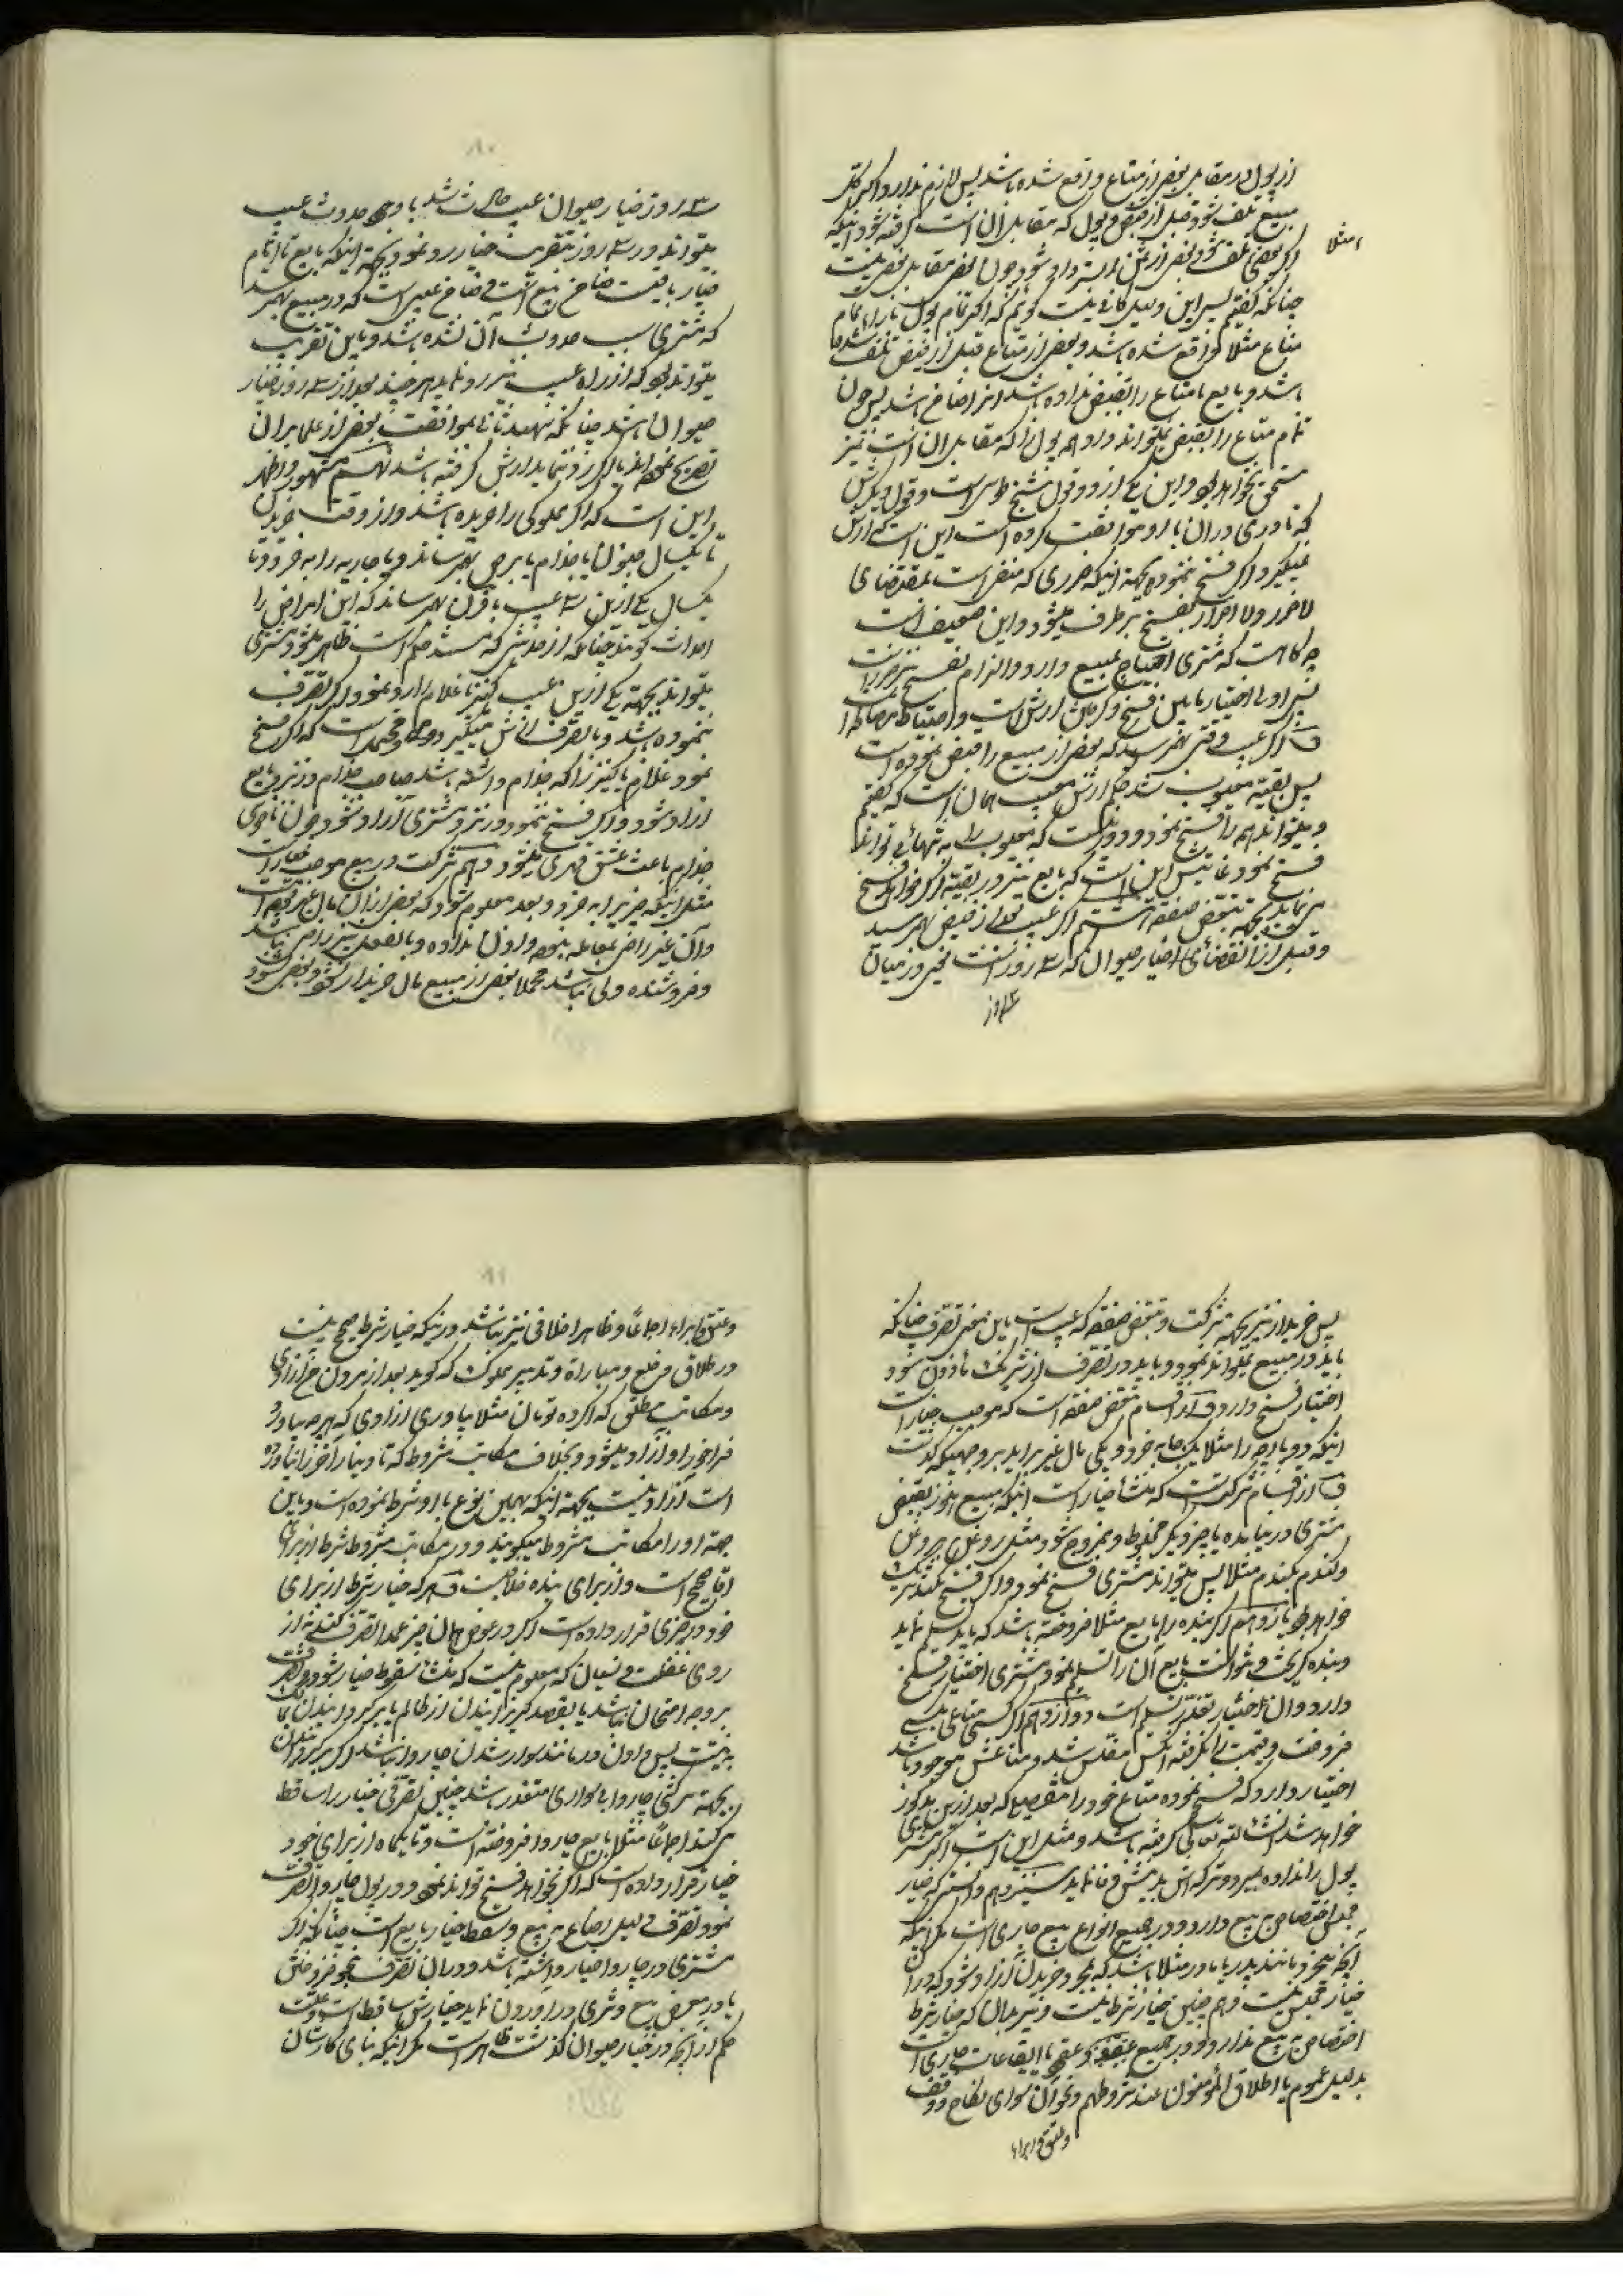 از پول در مقابل بعضی از متاع واقع شده باشد پس لازم ندارد اگر کل
مبیع تلف شود قبل از قبض و پول که مقابل آن است گرفته شود اینکه
امثلا
اگر بعضی تلف شود بعضی از ثمن استرداد شود چون بعض مقابل بعض نیست
چنانکه گفتیم پس این دلیل کافی نیست گوئیم که اگر تمام پول بازاء تمام
متاع مثلا واقع شده باشد و بعضی از متاع قبل از قبض تلف شده
باشد و بایع متاع را بقبض نداده باشد انرا ضامن باشد پس چون
تمام متاع را بقبض نداده همه پول را که مقابل آن است نیز
مستحق نخواهد بود و این یکی از دو قول شیخ طوسی است و قول دیگرش
که نادری در آن با او موافقت کرده است این است که ارش
نمیگیرد اگر فسخ ننموده بجهة اینکه ضرری که منفی است بمقتضای
لا ضرر ولا اضرار بفسخ برطرف میشود و این ضعیف است
چه گاهست که مشتری احتیاج بمبیع دارد و الزام بفسخ نیز ضرر است
پس اولی اختیار مابین فسخ و گرفتن ارش است و احتیاط مصالحه
و اگر عیب وقتی بهم رسید که بعضی از مبیع را قبض نموده است
پس بقیه معیوب شد حکم ارش معیب همان است که گفتیم
و میتواند همه را فسخ نمود و دور نیست که معیوب را به تنهائی تواند
فسخ نمود غایتش این است که بایع نیز در بقیه اگر خواهد فسخ
می نماید بجهة تبعض صفقه اگر عیب بعد از قبض بهم رسید
و قبل از انقضای خیار حیوان که سه روز است یعنی در میان
سه روز
سه روز خیار حیوان عیب حادث شد با وجود حدوث عیب
میتواند در سه روز بتقریب خیار رد نمود بجهة اینکه بایع تا ایام
خیار باقیست ضامن مبیع است و ضامن عیبی است که در مبیع بهم رسد
که مشتری سبب حدوث آن نشده باشد و باین تقریب
میتواند بود که از راه عیب نیز رد نماید هر چند بعد از سه روز خیار
حیوان باشد چنانکه شهید ثانی بموافقت بعضی از علما بر آن
تصریح نموده اند
این است که اگر مملوکی را خریده باشد و از وقت خریدن
تا یکسال جنون یا جذام یا برص بهم رساند و یا جاریه را بخرد و تا
یکسال یکی ازین سه عیب یا قرن بهم رساند که این امراض را
احداث گویند چنانکه از حدیثی که مستند حکم است ظاهر میشود مشتری
میتواند بجهة یکی ازین عیب کنیز یا غلام را رد نمود اگر تصرف
ننموده باشد و با تصرف ارش میگیرد و محتمل است که اگر فسخ
نمود غلام یا کنیز را که جذام داشته باشد صاحب جذام در نزد بایع
آزاد شود و اگر فسخ ننمود در نزد مشتری آزاد شود چون ناخوشی
جذام باعث عتق قهری میشود دهم شرکت در مبیع موجب خیار است
مثل اینکه چیزی را بخرد و بعد معلوم شود که بعضی از آن مال غیر بوده است
و آن غیر راضی بمعامله نبوده و اذن نداده و بالفعل نیز راضی نباشد
و فروشنده ولی نباشد مجملا بعضی از مبیع مال خریدار بشود و بعضی نشود
پس خریدار نیز بجهة شرکت و تبعض صفقه که عیب است باین معنی تصرف چنانکه
باید در مبیع نمیتواند نمود و باید در تصرف از شریک مأذون شود
اختیار فسخ دارد و از اقسام تبعض صفقه است که موجب خیار است
اینکه دو پارچه را مثلا یکجا بخرد و یکی مال غیر برآید بر وجهیکه گذشت
و از اقسام شرکت است که منشأ خیار است اینکه مبیع هنوز بقبض
مشتری در نیامده با چیز دیگر مخلوط و ممزوج شود مثل روغن بروغن
و گندم بگندم مثلا پس میتواند مشتری فسخ نمود و اگر فسخ نکند شریک
خواهد بود یازدهم اگر بنده را بایع مثلا فروخته باشد که باید تسلیم نماید
و بنده گریخت و نتوانست بایع آن را تسلیم نمود مشتری اختیار فسخ
دارد و آن اختیار تعذر تسلیم است دوازدهم اگر کسی متاعی بکسی
فروخت و قیمت را نگرفته آنکس مفلس شد و متاعش موجود باشد
اختیار دارد که فسخ نموده متاع خود را بتفصیلی که بعد ازین مذکور
خواهد شد انشاء الله تعالی گرفته باشد و مثل این است اگر مشتری
پول را نداده بمیرد و ترکه اش بدینش وفا نماید سیزدهم دانستی که خیار
مجلس اختصاص به بیع دارد و در جمیع انواع بیع جاری است مگر اینکه
آنچه بخرد مانند پدر یا مادر مثلا باشد که بمجرد خریدن آزاد شود که در آن
خیار مجلس نیست و هم چنین خیار شرط نیست و نیز بدان که خیار شرط
اختصاص به بیع ندارد و در جمیع عقود و عقدی یا ایقاعات جاری است
بدلیل عموم یا اطلاق المؤمنون عند شروطهم و نحو آن سوای نکاح و وقف
و عتق و ابراء
و عتق و ابراء اجماعًا و ظاهرا خلافی نیز نباشد در اینکه خیار شرط صحیح نیست
در طلاق و خلع و مبارات و تدبیر مملوک که گوید بعد از مردن من آزادی
و مکاتب مطلق که اگر ده تومان مثلا بیاوری آزادی که هر چه بیاورد
فراخور او آزاد میشود و بخلاف مکاتب مشروط که تا دینار آخر را نیاورده
است آزاد نیست بجهة اینکه بهمین نوع با او شرط نموده است و باین
جهة او را مکاتب مشروط میگویند و در مکاتب مشروط شرط از برای
آقا صحیح است و از برای بنده خلافست و هر که خیار شرط از برای
خود در چیزی قرار داده است اگر در عوض همان چیز عمدا تصرف کند نه از
روی غفلت و نسیان که معلوم نیست که منشأ سقوط خیار شود
بر وجه امتحان نباشد یا بقصد گریزانیدن از ظالم یا برگردانیدن
بجهة سرکشی چاروا بی سواری متعذر باشد چنین تصرفی خیار را ساقط
می کند اجماعًا مثلا بایع چاروا فروخته است و تا یکماه از برای خود
خیار قرار داده است که اگر بخواهد فسخ تواند نمود و در پول چاروا تصرف
نمود تصرف دلیل رضا به بیع و مسقط خیار بایع است چنانکه اگر
مشتری در چاروا خیار داشته باشد و در آن تصرف بنحو فروختن
یا در معرض بیع و شری در آوردن نماید خیارش ساقط است و علت
حکم از آنچه در خیار حیوان گذشت ظاهر است مگر اینکه بنای کارشان